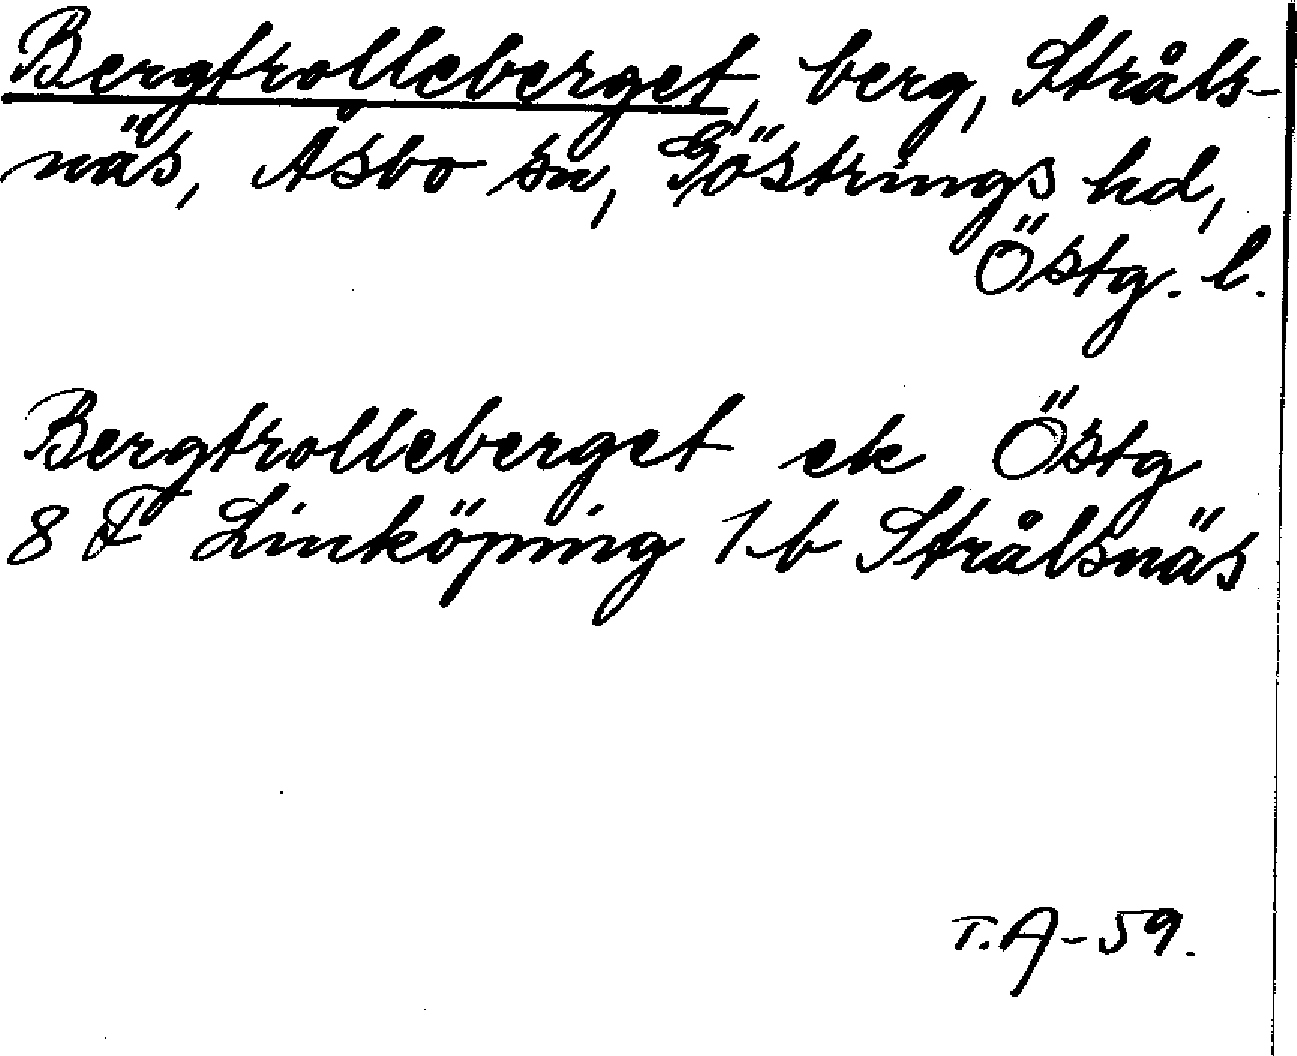 Bergtrolleberget, berg, Stråls-
näs, Åsbo sn, Göstrings hd,
Östg. l.
Bergtrolleberget ek Östg
8 F Linköping 1 b Strålsnäs
T.A-59.